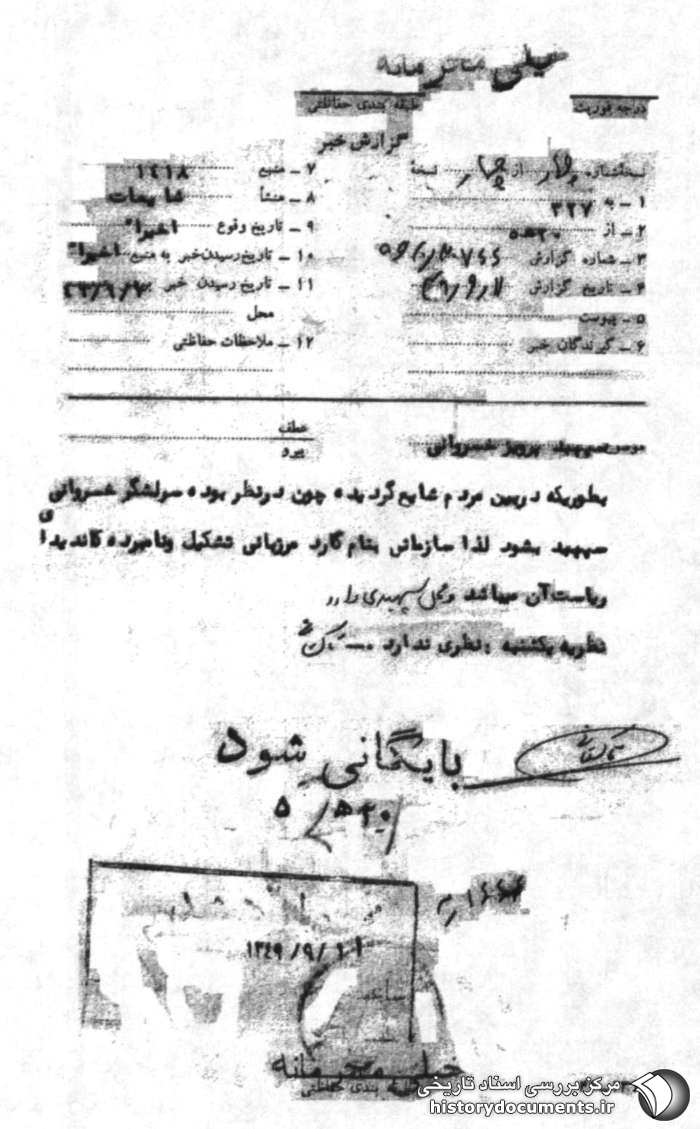 خیلی محرمانه
درجه فوریت
طبقه بندی حفاظتی
گزارش خبر
نسخه شماره چهار از چهار نسخه
۱ ـ به ۳۲۷
۲ ـ از ۲۰ ه ۵
۳ ـ شماره گزارش
۴ ـ تاریخ گزارش
۵ ـ پیوست
۶ ـ گیرندگان خبر
۷ ـ منبع ۱۴۱۸
۸ ـ منشأ شایعات
۹ ـ تاریخ وقوع اخیراً
۱۰ ـ تاریخ رسیدن خبر به منبع اخیراً
۱۱ ـ تاریخ رسیدن خبر
محل
۱۲ ـ ملاحظات حفاظتی
موضوع سپهبد پرویز خسروانی
عطف
پیرو
بطوریکه دربین مردم شایع گردیده چون درنظر بوده سرلشگر خسروانی
سپهبد بشود لذا سازمانی بنام گارد مرزبانی تشکیل ونامبرده کاندیدای
ریاست آن میباشد ومحل سپهبدی دارد
نظریه یکشنبه : نظری ندارد .
بایگانی شود
۲۰ ه ۵
۱۳۴۹/۹/۱۱
خیلی محرمانه
طبقه بندی حفاظتی
مرکز بررسی اسناد تاریخی
historydocuments.ir